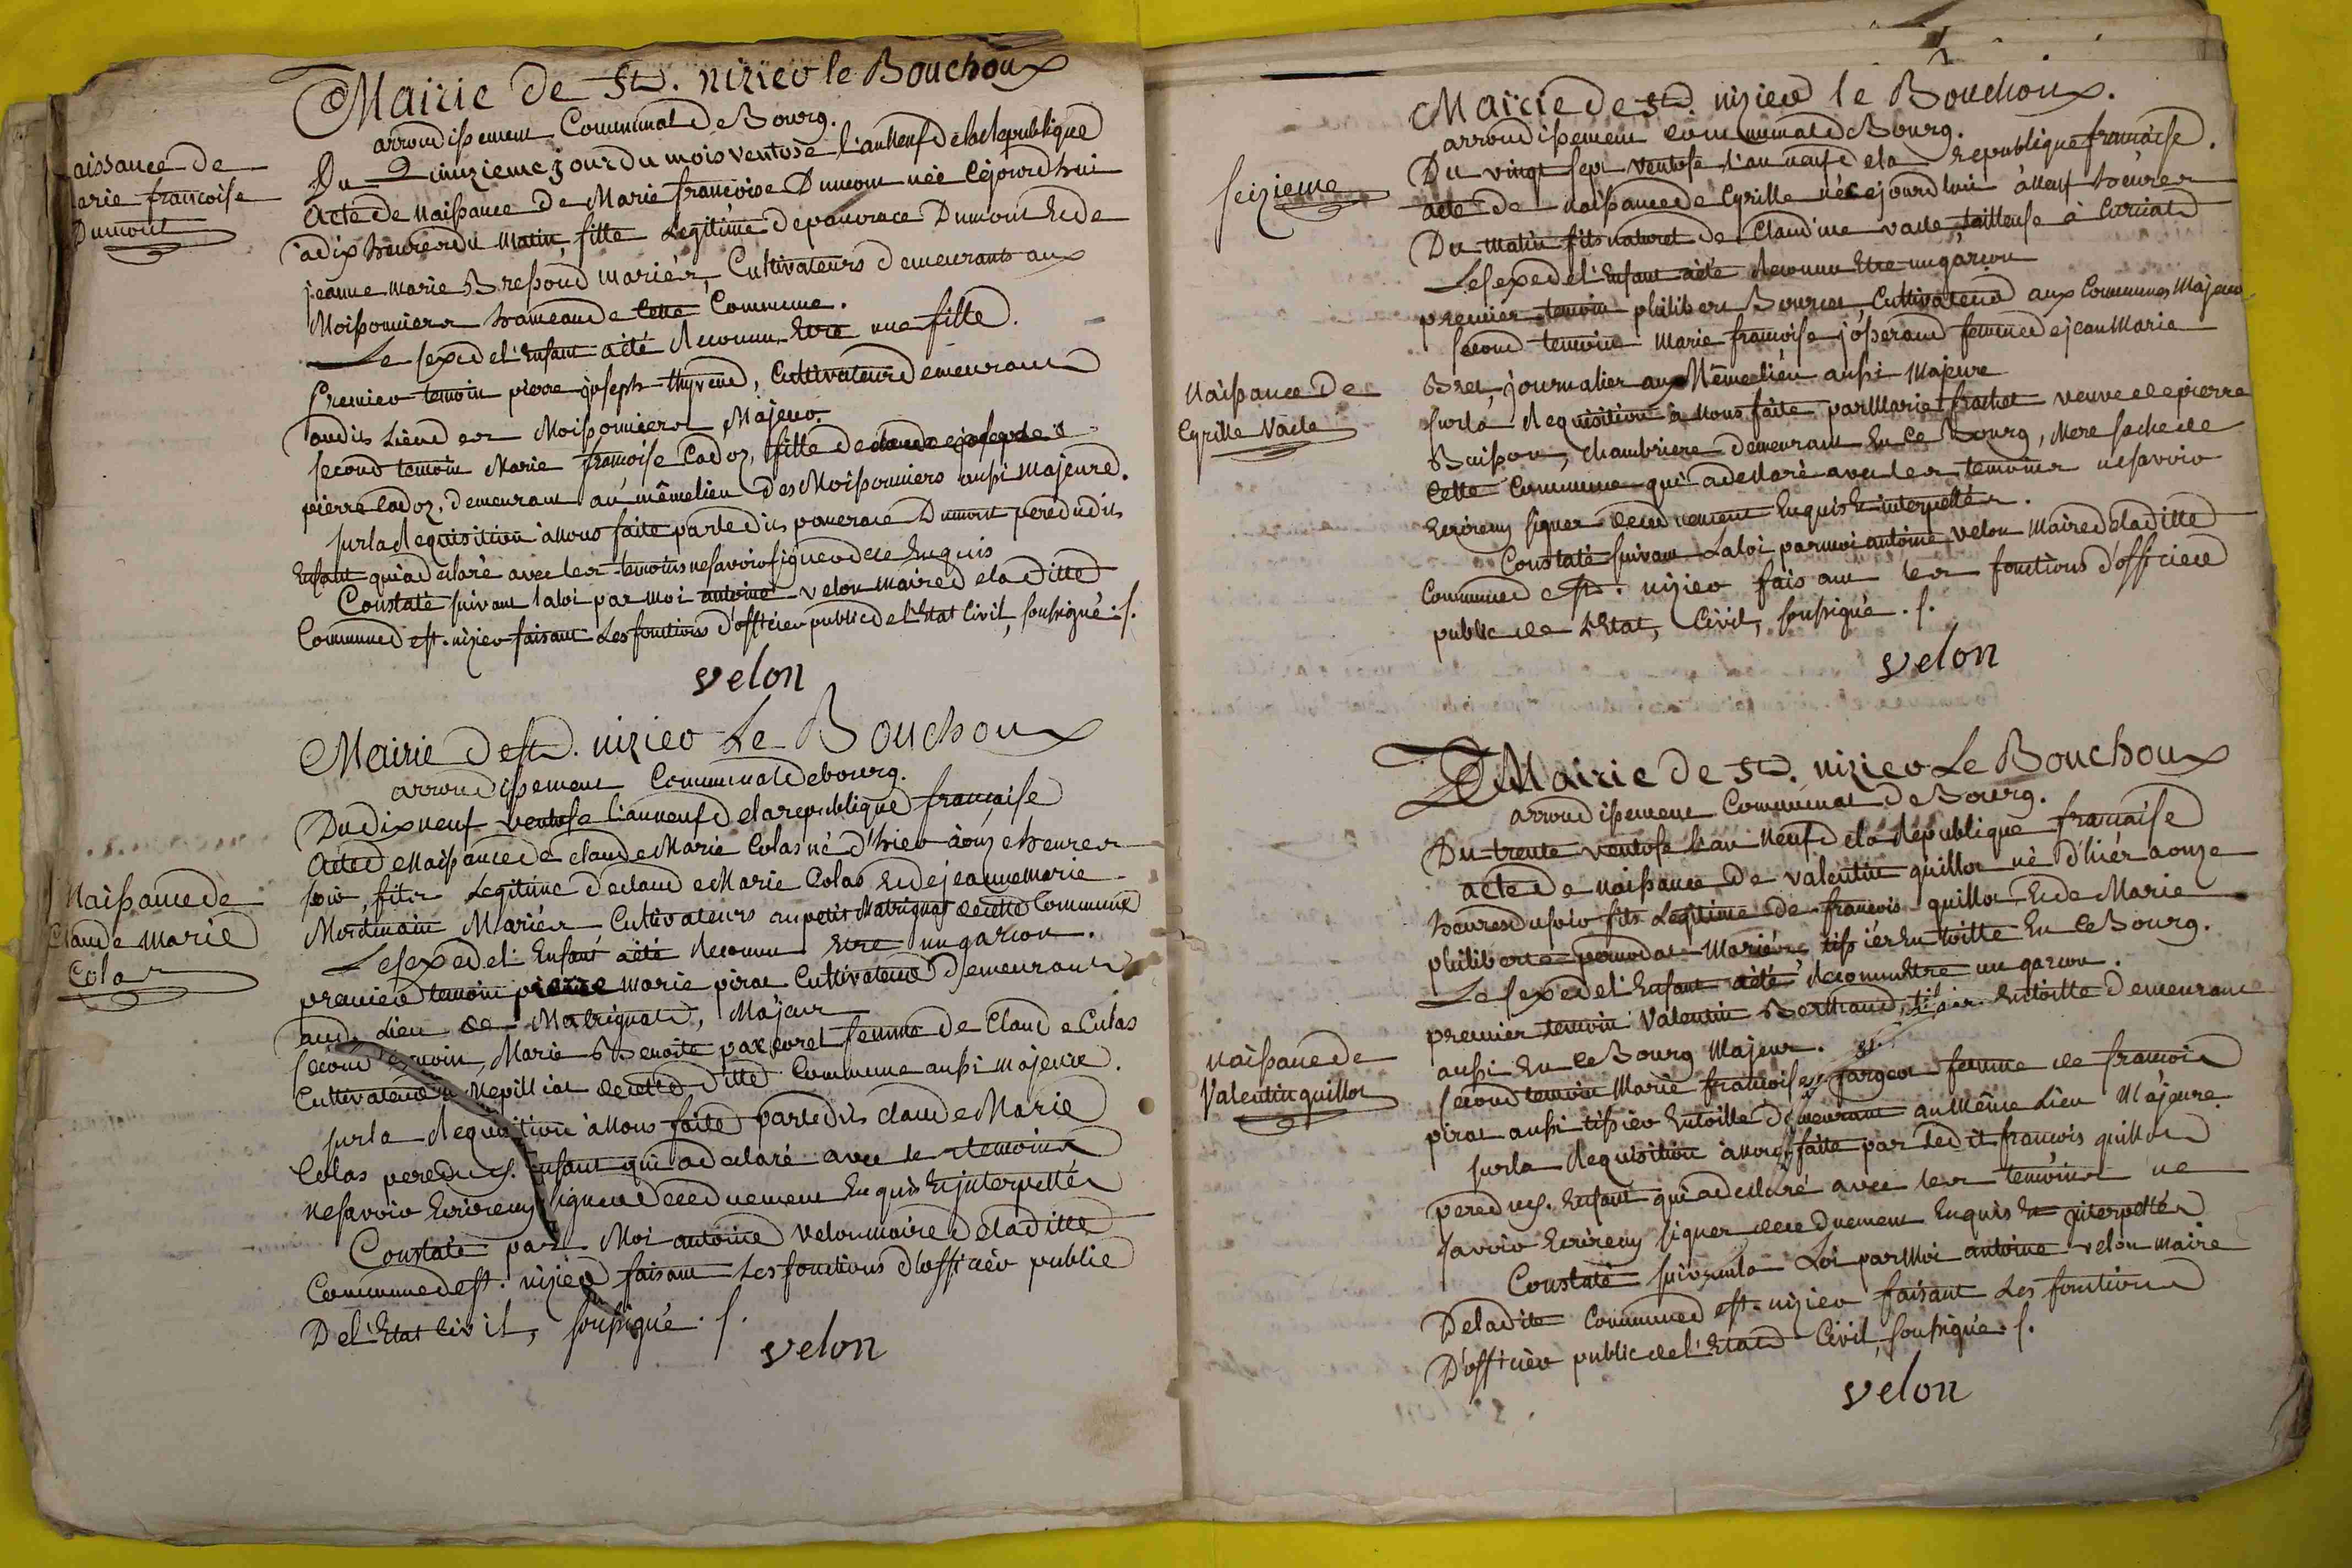 Mairie de St. nizier le Bouchoux
arrondissement Communal de Bourg.
aissance de
arie francoise
Dumont
Du Quinzieme jour du mois ventose l'an neuf de la republique
Acte de naissance de Marie francoise Dumont née Cejourdhui
à dix heures du matin, fille Legitime de pancrace Dumont Et de
jeanne marie Bressoud mariés, Cultivateurs demeurants aux
Moissonniers hameau de Cette Commune.
Le sexe de l'Enfant a été Reconnu Etre une fille.
Premier temoin pierre joseph thyvend, Cultivateur demeurant
audit Lieu des Moissonniers Majeur.
second temoin Marie françoise Cadoz, fille de
pierre Cadoz, demeurant au même lieu des Moissonniers aussi majeure.
sur la Requisition à nous faite par ledit pancrace Dumont pere dudit
Enfant qui a déclaré avec les temoins ne savoir signer de ce Enquis
Constaté suivant la loi par moi antoine velon maire de la ditte
Commune de st. nizier faisant Les fonctions d'officier public de l'Etat Civil, soussigné. s.
velon
Mairie de st. nizier Le Bouchoux
arrondissement Communal de bourg.
Naissance de
Claude Marie
Colas
Du dix neuf ventose l'an neuf de la republique française
Acte de Naissance de claude Marie Colas né d'hier à onze heures
soir, fils Legitime de claude Marie Colas Et de jeanne marie
Mariés Cultivateurs au petit Matrignat de cette Commune
Le sexe de l'Enfant a été Reconnu Etre un garcon.
premier temoin pierre marie pirat Cultivateur demeurant
aud. Lieu de Matrignat, Majeur
second temoin, Marie Benoite femme de Claude Culas
Cultivateur de cette ditte Commune aussi majeure.
sur la Requisition à Nous faite par ledit claude Marie
Colas pere du s. Enfant qui a declaré avec les temoins
ne savoir Ecrire ny signer de ce duement Enquis Et interpellés
Constaté par Moi antoine velon maire de la ditte
Commune de st. nizier faisant Les fonctions d'officier public
De l'Etat Civil, soussigné. s.
velon
seizieme
Mairie de St. nizier le Bouchoux.
arrondissement communal de Bourg.
Du vingt sept ventose l'an neuf de la republique francaise.
acte de naissance de Cyrille né cejourdhui à neuf heures
Du matin fils naturel de Claudine vacle tailleuse à Curciat
Le sexe de l'Enfant a été Reconnu Etre un garcon
premier temoin philibert Bourcet, Cultivateur aux Communes Majeur
second temoin Marie francoise josserand femme de jean Marie
Naissance de
Cyrille Vacle
Bret, journalier au Même lieu aussi Majeure
sur la Requisition à nous faite par Marie frachet veuve de pierre
Buisson, chambriere demeurant En ce Bourg, Mere sache de
Cette Commune qui a declaré avec les temoins ne savoir
Ecrire ny signer de ce duement Enquis Et interpellés.
Constaté suivant La loi par moi antoine velon maire de la ditte
Commune de st. nizier faisant les fonctions d'officier
public de l'Etat, Civil, soussigné. s.
velon
Mairie de St. nizier Le Bouchoux
arrondissement Communal de Bourg.
Du trente ventose l'an neuf de la Republique francaise
acte de naissance de valentin quillot né d'hier a onze
heures du soir fils Legitime de francois quillot Et de Marie
philiberte pernodat Mariés tissier En toille En ce Bourg.
Le sexe de l'Enfant a été reconnu Etre un garcon.
Naissance de
Valentin quillot
premier temoin Valentin Berthaud, tissier En toille demeurant
aussi En ce Bourg Majeur.
second temoin Marie francoise fargeot femme de francois
pirat aussi tissier En toille demeurant au Même Lieu Majeure
sur la Requisition à nous faite par ledit francois quillot
pere du s. Enfant qui a declaré avec les temoins ne
savoir Ecrire ny signer de ce duement Enquis Et interpellés
Constaté suivant la Loi par Moi antoine velon maire
De la dite Commune de st. nizier faisant Les fonctions
D'officier public de l'Etat Civil soussigné. s.
velon